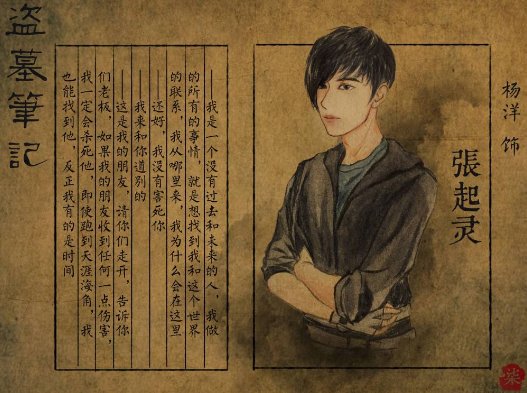 杨洋 饰
張起灵
——我是一个没有过去和未来的人，我做
的所有的事情，就是想找到我和这个世界
的联系，我从哪里来，我为什么会在这里
——还好，我没有害死你
——我来和你道别的
——这是我的朋友，请你们走开，告诉你
们老板，如果我的朋友收到任何一点伤害，
我一定会杀死他，即使跑到天涯海角，我
也能找到他，反正我有的是时间
盗墓筆記
柒